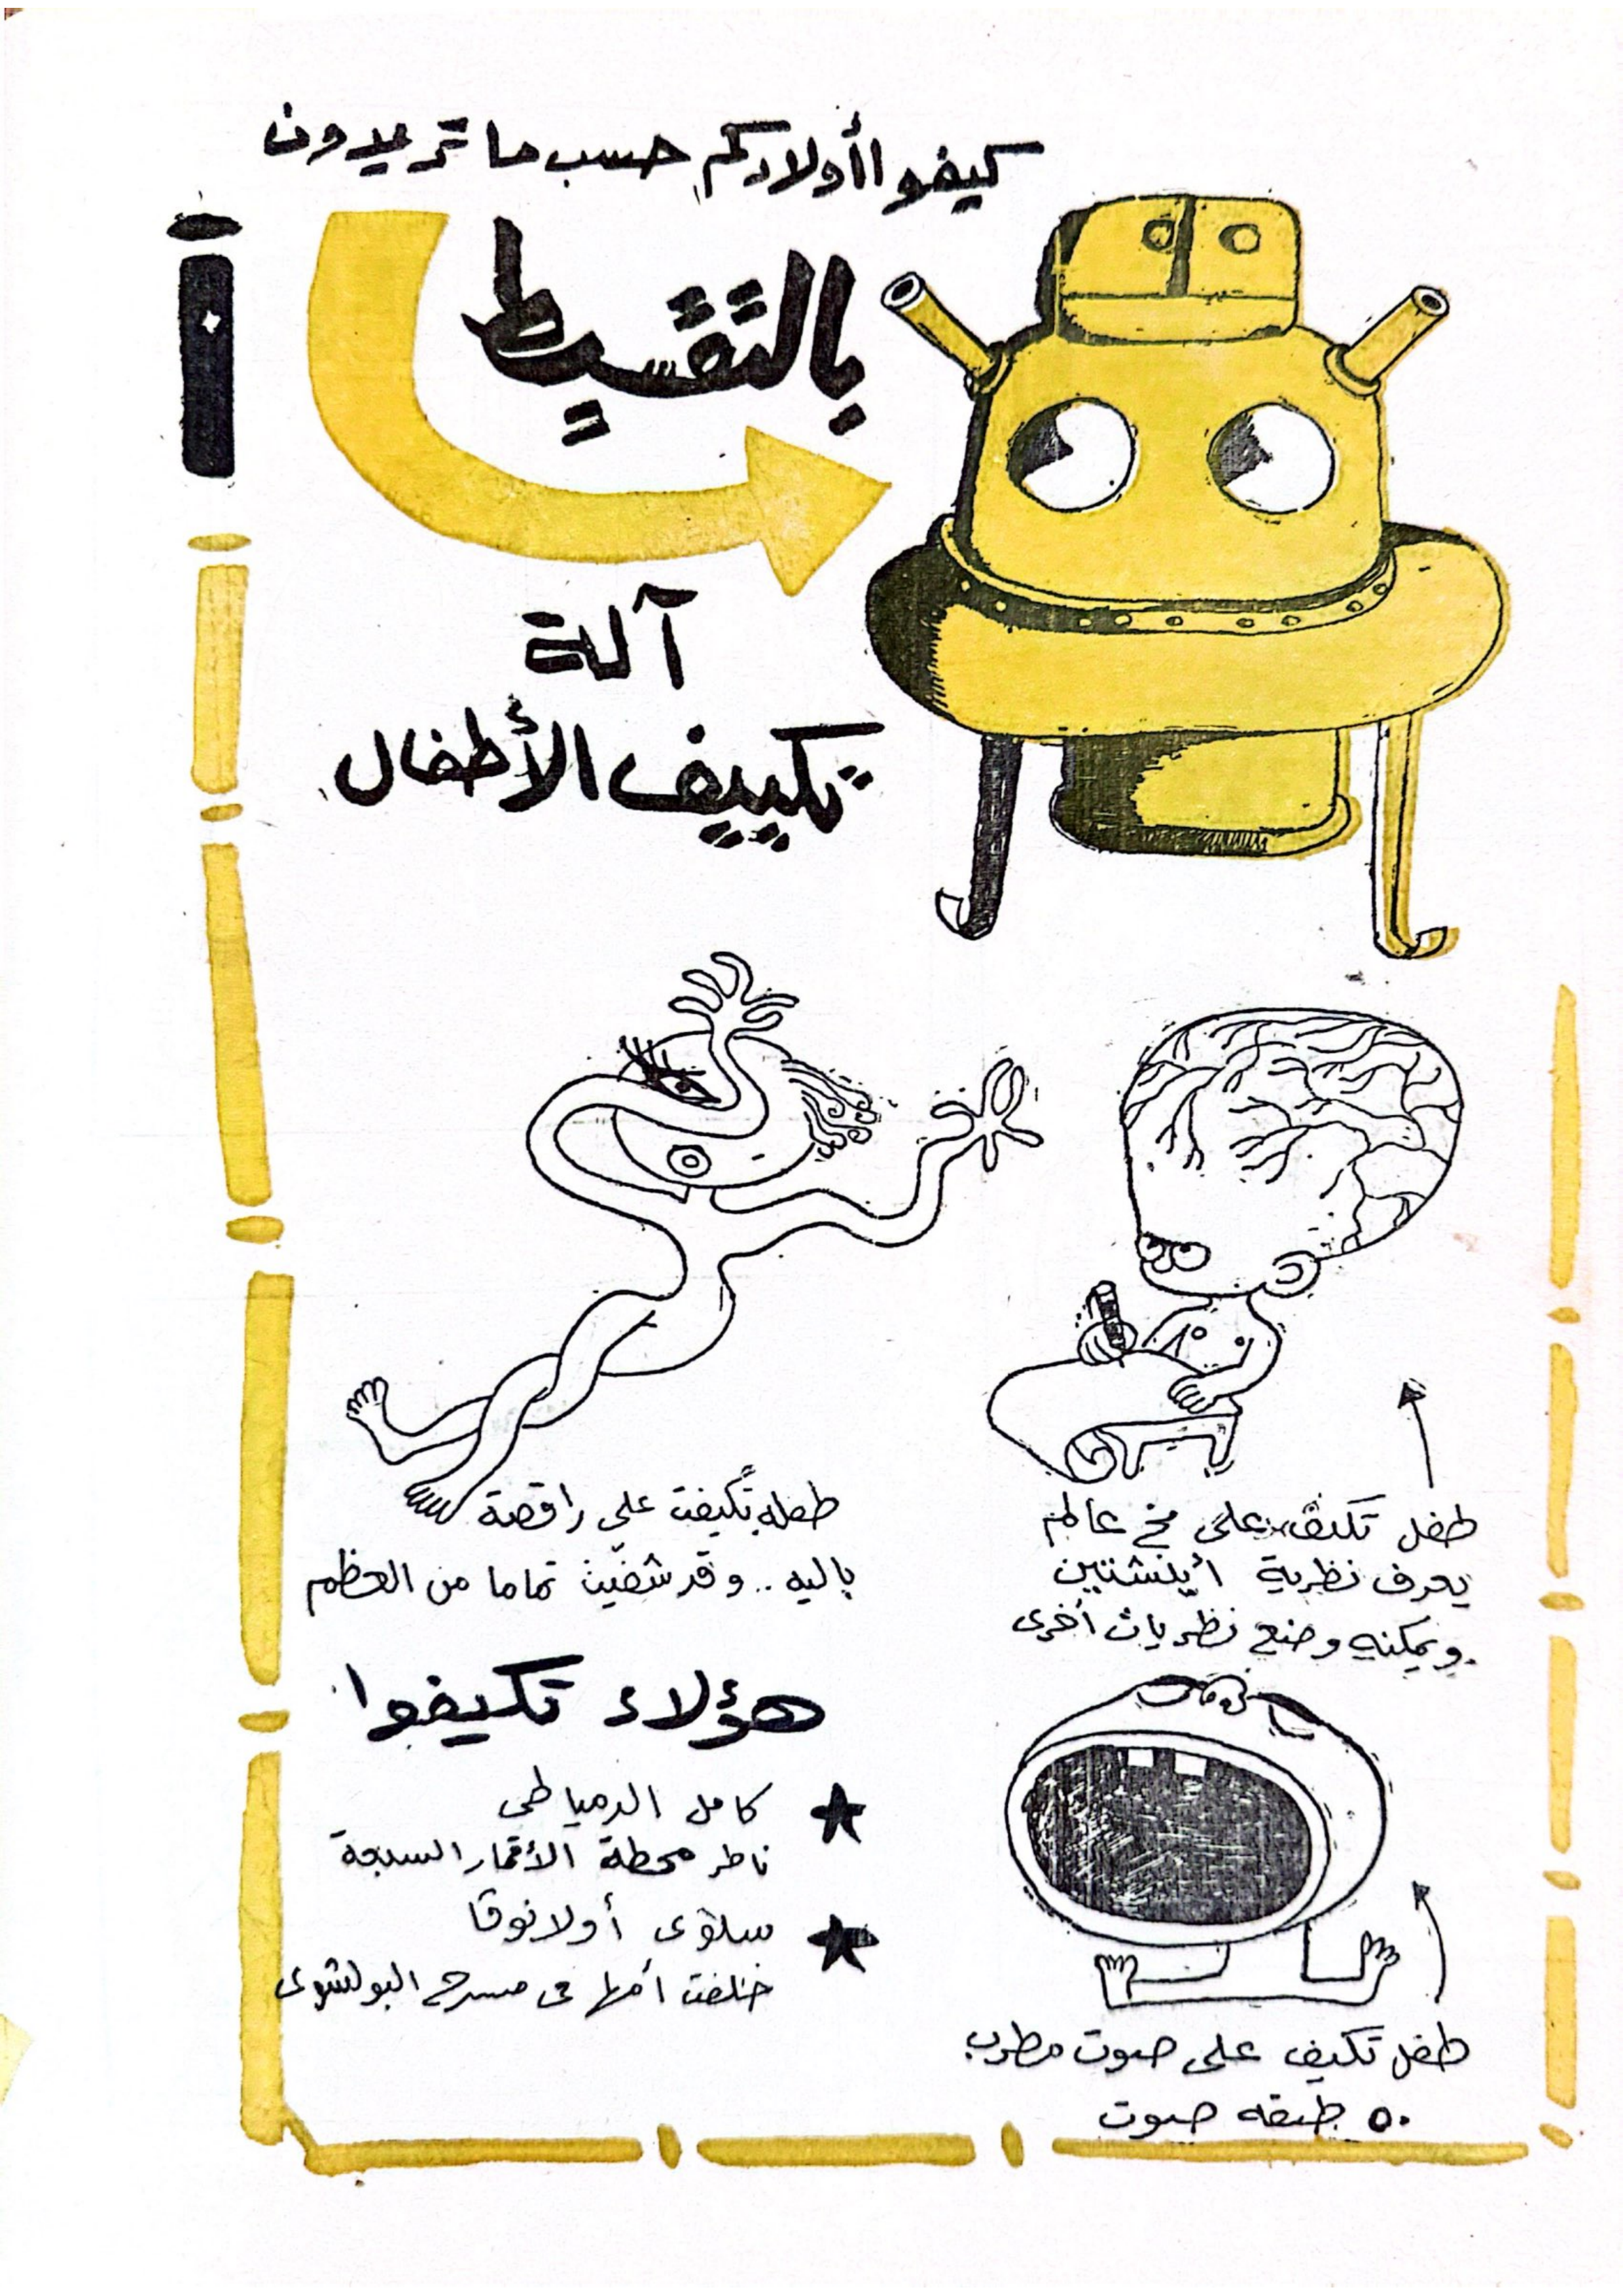 كيفوا أولادكم حسب ما تريدون
بالتقسيط
آلة
تكييف الأطفال
طفل تكيف على مخ عالم
يعرف نظرية أينشتين
ويمكنه وضع نظريات أخرى
طفله تكيفت على راقصة
باليه .. وقد شفيت تماما من العظم
هؤلاء تكيفوا
كامل الدمياطى
ناظر محطة الأقمار السبعة
سلوى أولانوفا
خلفت أمها فى مسرح البولشوى
طفل تكيف على صوت مطرب
٥٠ طبقه صوت